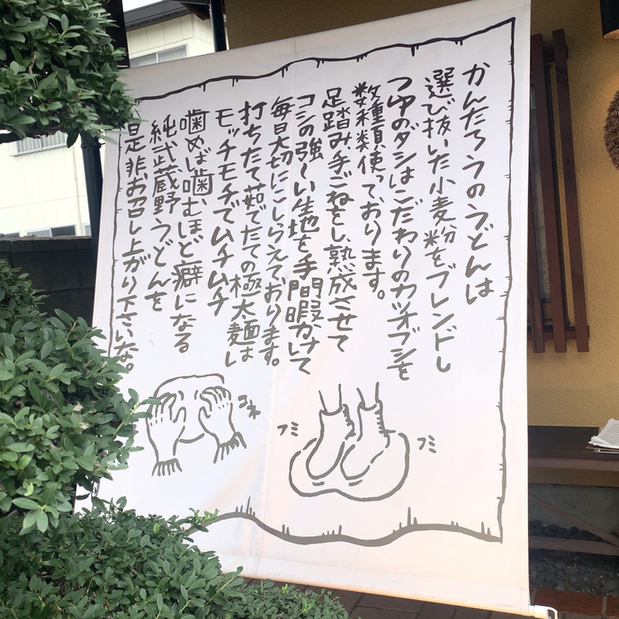 かんたろうのうどんは
選び抜いた小麦粉をブレンドし
つゆのダシはこだわりのカツオブシを
数種類使っております。
足踏み手ごねをし、熟成させて
コシの強〜い生地を手間暇かけて
毎日大切にこしらえております。
打ちたて茹でたての極太麺は
モッチモチでムチムチ
噛めば噛むほど癖になる
純武蔵野うどんを
是非お召し上がり下さいな。
こね
フミ
フミ